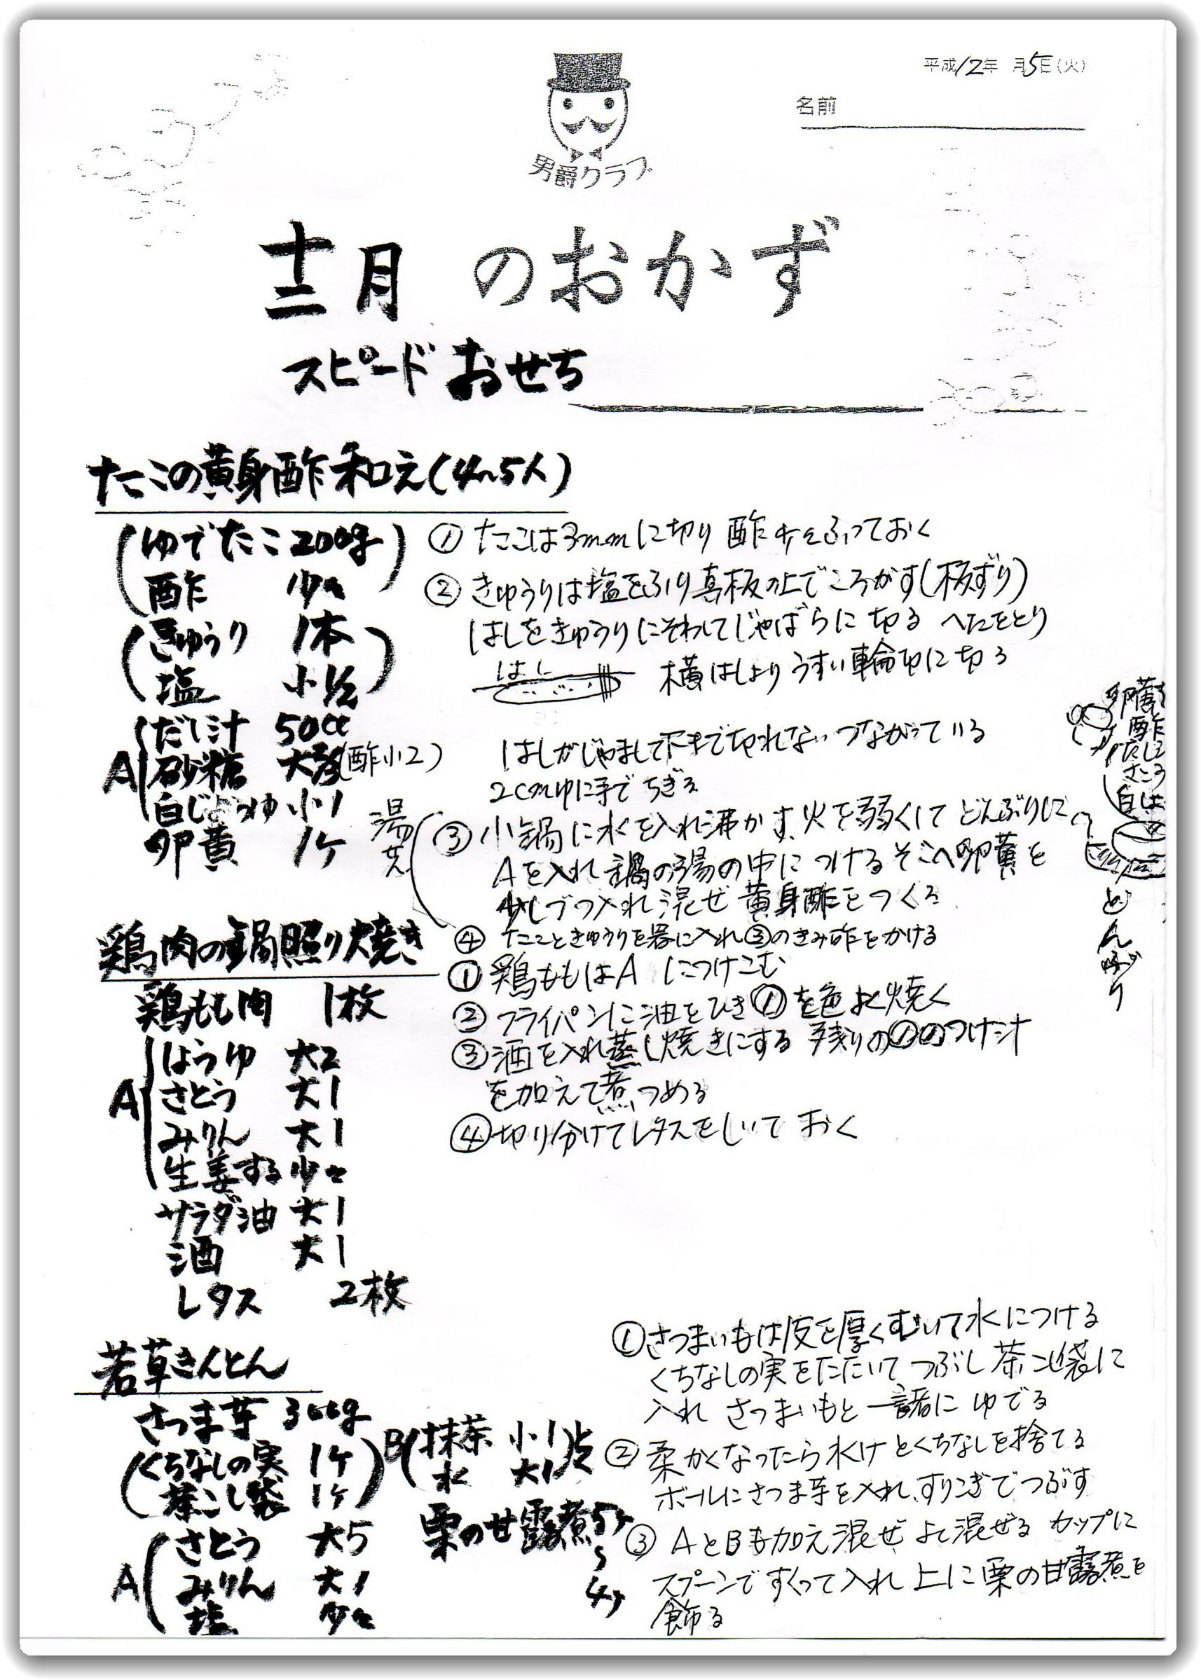 平成12年 月5日(火)
名前
男爵クラブ
十二月 のおかず
スピード おせち
たこの黄身酢和え(4〜5人)
ゆでたこ 200g
酢 少々
きゅうり 1本
塩 小1/2
A だし汁 50cc
砂糖 大 (酢小2)
白じょうゆ 小1
卵黄 1ヶ
① たこは3mmに切り 酢少々ふっておく
② きゅうりは塩をふり真板の上でころがす(板ずり)
はしをきゅうりにそわしてじゃばらに 切る へたをとり
はし 横はしより うすい輪切に切る
はしがじゃまして下まで切れない つながっている
2cm切に手で ちぎる
湯せん
③ 小鍋に水を入れ沸かす、火を弱くして どんぶりに
Aを入れ 鍋の湯の中に つける そこへ卵黄を
少しづつ入れ混ぜ 黄身酢をつくる
④ たこときゅうりを器に入れ③のきみ酢をかける
卵黄
酢
だし
さとう
白しょ
どんぶり
鶏肉の鍋照り焼き
鶏もも肉 1枚
A しょうゆ 大2
さとう 大1
みりん 大1
生姜する 少々
サラダ油 大1
酒 大1
レタス 2枚
① 鶏ももはA につけこむ
② フライパンに油をひき①を色よく焼く
③ 酒を入れ蒸し焼きにする 残りの①のつけ汁
を加えて煮つめる
④ 切り分けてレタスをしいて おく
若草きんとん
さつま芋 300g
くちなしの実 1ケ
茶こし袋 1ケ
A さとう 大5
みりん 大1
塩 少々
B 抹茶 小1
水 大1
栗の甘露煮
① さつまいもは皮を厚くむいて水につける
くちなしの実をたたいて、つぶし 茶こし袋に
入れ さつまいもと 一諸に ゆでる
② 柔かくなったら水けとくちなしを捨てる
ボールにさつま芋を入れ、すりこぎでつぶす
③ AとBも加え混ぜ よく混ぜる カップに
スプーンですくって入れ 上に栗の甘露煮を
飾る